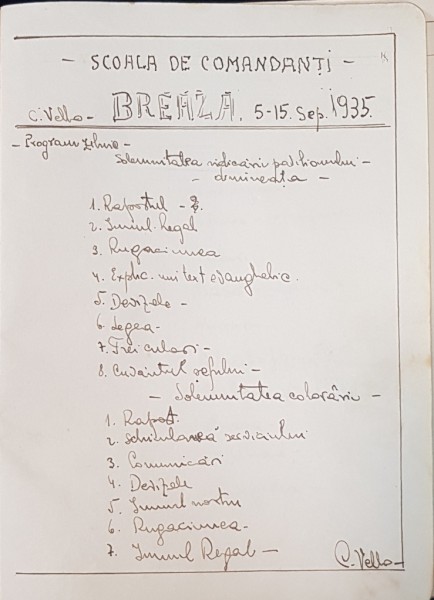 - SCOALA DE COMANDANȚI -
C. Vello - BREAZA. 5-15. Sep. 1935.
- Program zilnic -
Solemnitatea ridicării pavilionului -
- dimineața -
1. Raportul -
2. Imnul Regal
3. Rugaciunea
4. Explic. unui text evanghelic.
5. Devizele -
6. Legea -
7. Trei culori -
8. Cuvântul șefului -
- Solemnitatea coborârii -
1. Raport.
2. schimbarea serviciului
3. Comunicări
4. Devizele
5. Imnul nostru
6. Rugaciunea -
7. Imnul Regal -
C. Vello -